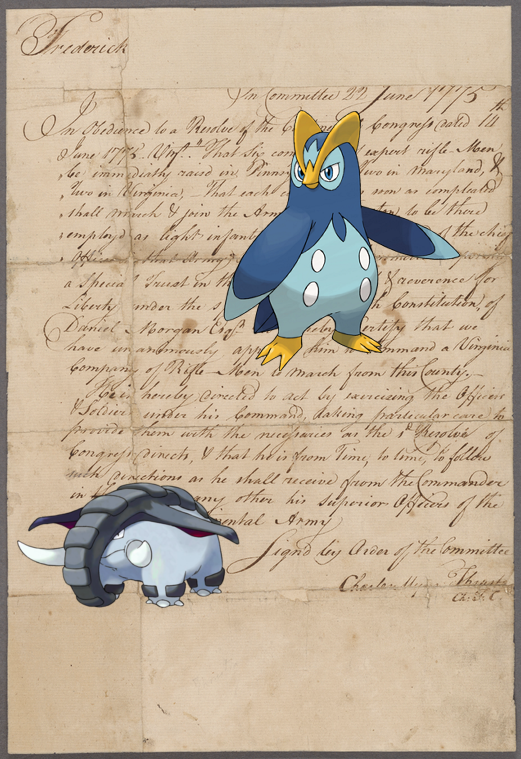 Frederick
In Committee 22 June 1775
In Obedience to a Resolve of the Congress dated 14th
June 1775. That Six expert rifle Men
be immediately raced in Two in Maryland, &
Two in Virginia, That each soon as compleated
shall march & join the Arm to be there
employd as light infant of the chief
a Special Trust in th & reverence for
Liberty under the s Constitution, of
Daniel Morgan Esqr Certify that we
have unanimously app him to Command a Virginia
Company of Rifle Men to march from this County.
He is hereby directed to act by exercising the Officers
& Soldiers under his Command, taking particular care to
provide them with the necessaries as the 1st Resolve of
Congress directs, & that he is from Time, to time, to follow
such directions as he shall receive from the Commander
in any other his Superior Officers of the
nental Army
Signd by Order of the Committee
Charles